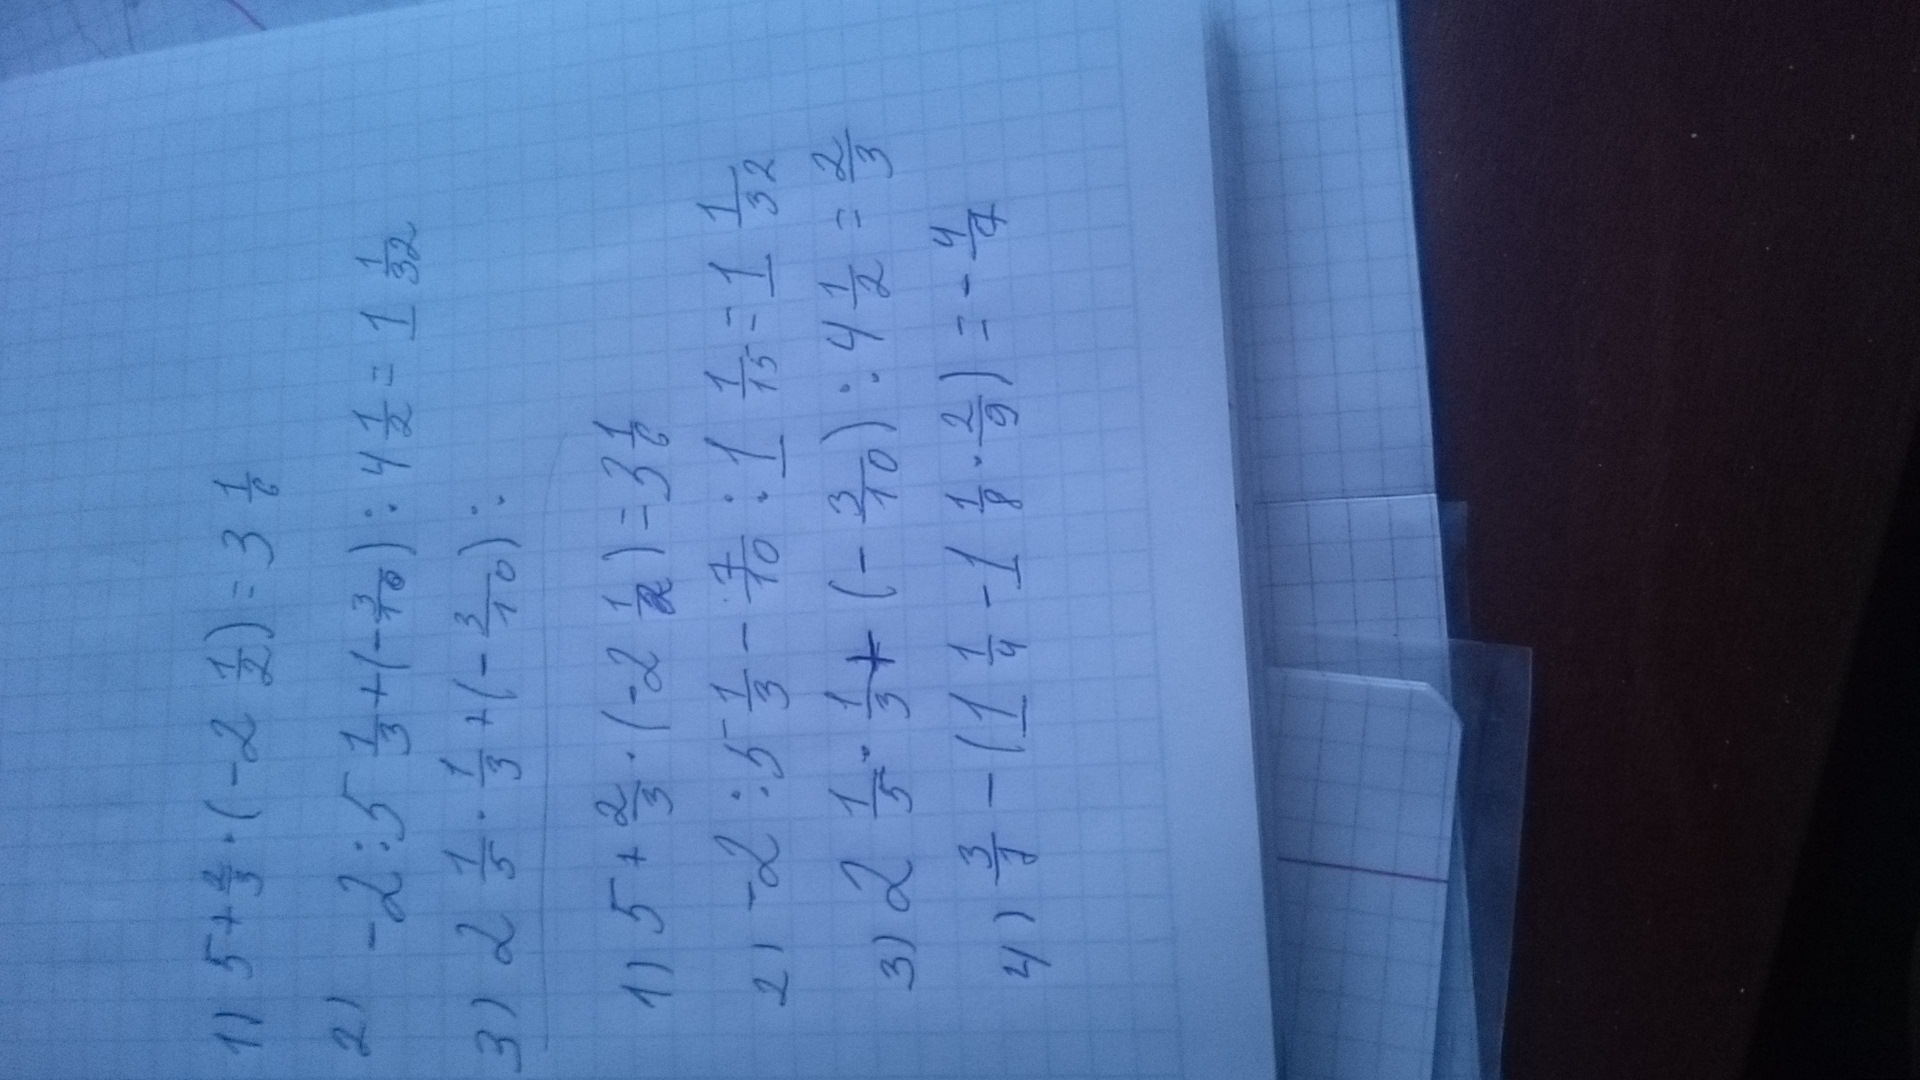 1) 5 + 2/3 · (-2 1/2) = 3 1/6
2) -2 : 5 1/3 + (- 3/10) : 4 1/2 = 1 1/32
3) 2 1/5 · 1/3 + (- 3/10) :
1) 5 + 2/3 · (-2 1/2) = 3 1/6
2) -2 : 5 1/3 - 7/10 : 1 1/15 = 1 1/32
3) 2 1/5 · 1/3 + (- 3/10) : 4 1/2 = 2/3
4) 3/7 - (1 1/4 - 1 1/8 · 2/9) = - 4/7